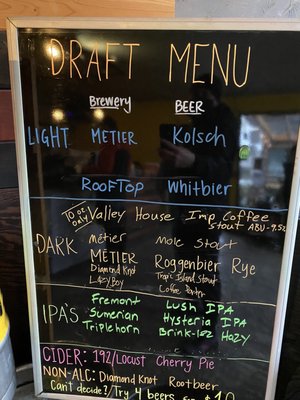 DRAFT MENU
Brewery BEER
LIGHT METIER Kolsch
ROOFTOP Whitbier
10 oz ONLY Valley House Imp Coffee
Stout ABU - 9.5%
DARK Métier Mole Stout
METIER Roggenbier Rye
Diamond Knot Tropic Island Stout
LAZY BOY Coffee Porter
IPA'S Fremont Lush IPA
Sumerian Hysteria IPA
Triplehorn Brink-182 Hazy
CIDER: 192/Locust Cherry Pie
NON-ALC: Diamond Knot Rootbeer
Can't decide?/Try 4 beers for $10